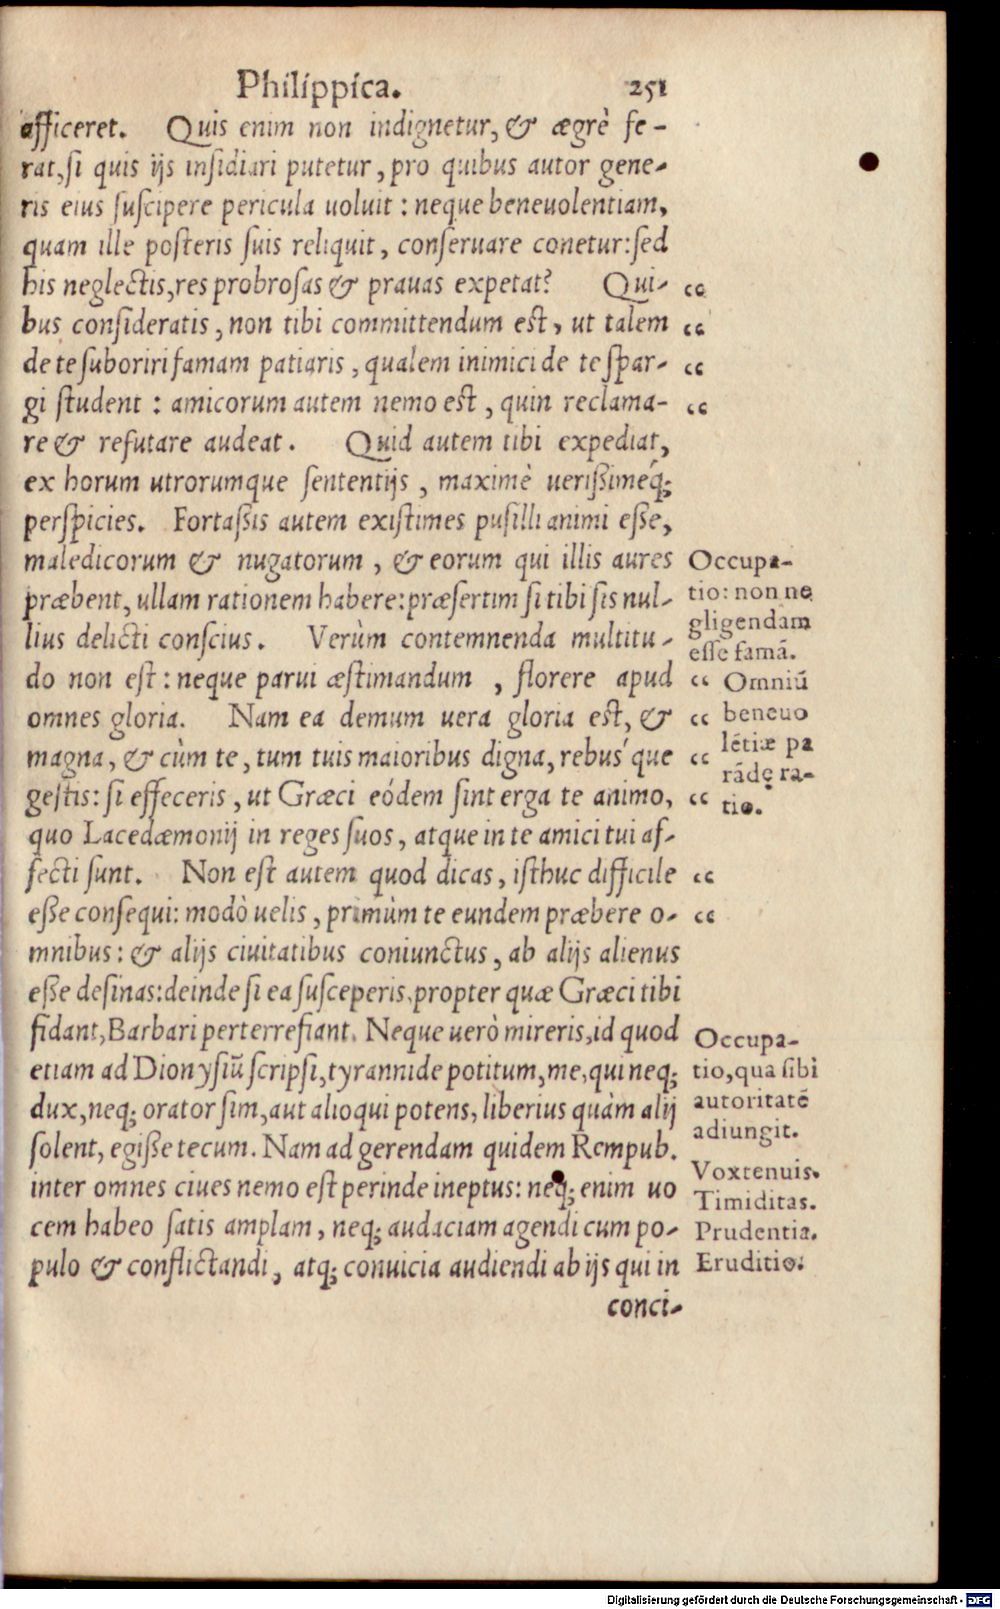 Philippica. 251
afficeret. Quis enim non indignetur, & ægrè fe-
rat, si quis ijs insidiari putetur, pro quibus autor gene-
ris eius suscipere pericula uoluit: neque beneuolentiam,
quam ille posteris suis reliquit, conseruare conetur: sed
his neglectis, res probrosas & prauas expetat? Qui-
bus consideratis, non tibi committendum est, ut talem
de te suboriri famam patiaris, qualem inimici de te spar-
gi student: amicorum autem nemo est, quin reclama-
re & refutare audeat. Quid autem tibi expediat,
ex horum utrorumque sententijs, maximè uerißiméq;
perspicies. Fortaßis autem existimes pusilli animi eße,
maledicorum & nugatorum, & eorum qui illis aures
præbent, ullam rationem habere: præsertim si tibi sis nul-
lius delicti conscius. Verùm contemnenda multitu-
do non est: neque parui æstimandum, florere apud
omnes gloria. Nam ea demum uera gloria est, &
magna, & cùm te, tum tuis maioribus digna, rebus´que
gestis: si effeceris, ut Græci eódem sint erga te animo,
quo Lacedæmonij in reges suos, atque in te amici tui af-
fecti sunt. Non est autem quod dicas, isthuc difficile
eße consequi: modò uelis, primùm te eundem præbere o-
mnibus: & alijs ciuitatibus coniunctus, ab alijs alienus
eße desinas: deinde si ea susceperis, propter quæ Græci tibi
fidant, Barbari perterrefiant. Neque uerò mireris, id quod
etiam ad Dionysiũ scripsi, tyrannide potitum, me, qui neq;
dux, neq; orator sim, aut alioqui potens, liberius quàm alij
solent, egiße tecum. Nam ad gerendam quidem Rempub.
inter omnes ciues nemo est perinde ineptus: neq; enim uo
cem habeo satis amplam, neq; audaciam agendi cum po-
pulo & conflictandi, atq; conuicia audiendi ab ijs qui in
conci-
“
“
“
“
Occupa-
tio: non ne
gligendam
esse famã.
“ Omniũ
“ beneuo
“ lẽtiæ pa
rãdę ra-
“ tio.
“
“
Occupa-
tio, qua sibi
autoritatẽ
adiungit.
Vox tenuis.
Timiditas.
Prudentia.
Eruditio.
Digitalisierung gefördert durch die Deutsche Forschungsgemeinschaft - DFG